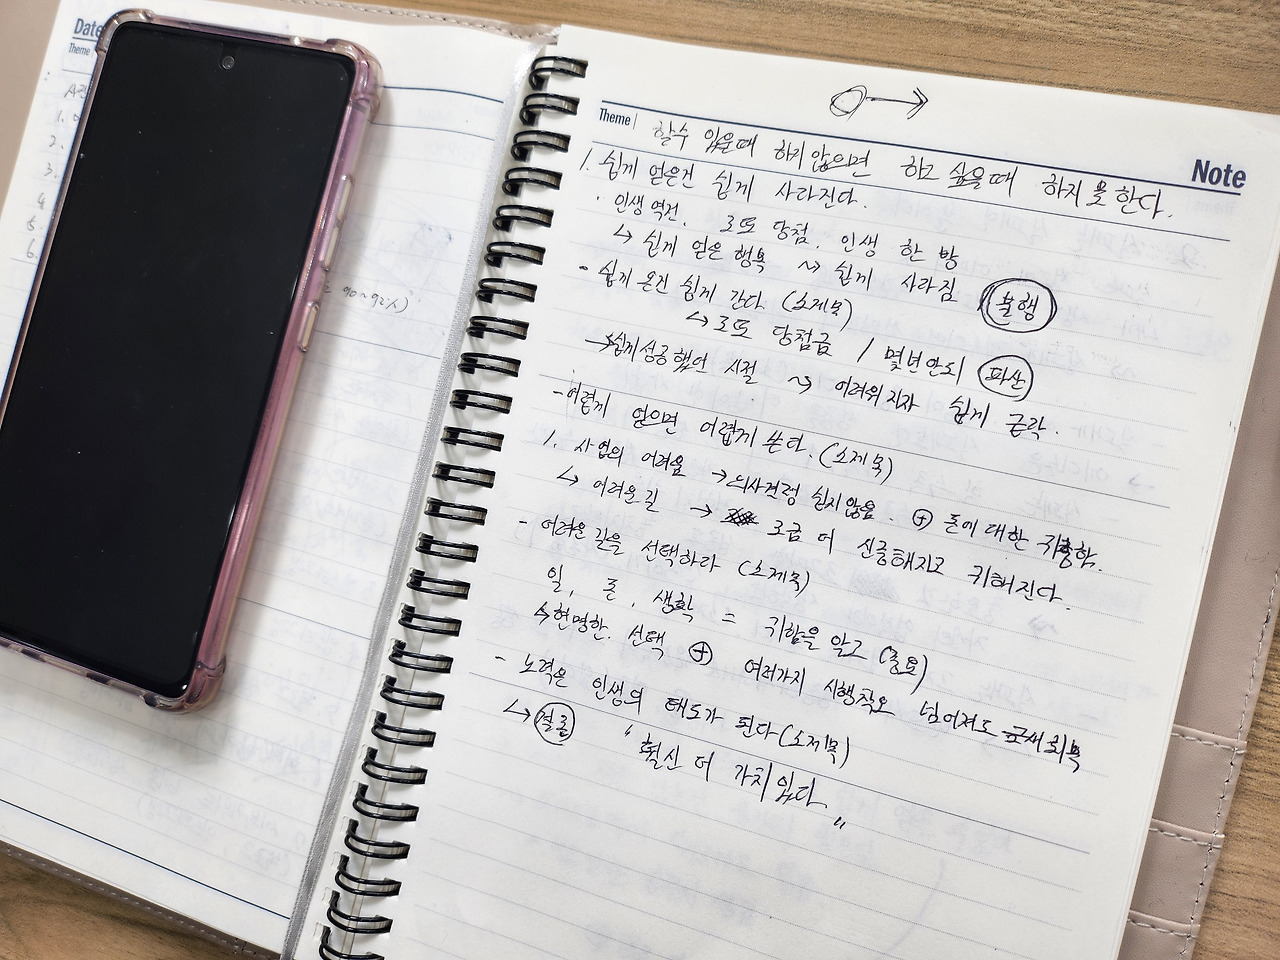 Date
Theme
1.
2.
3.
4
5.
6.
90~92%)
Theme
Note
할수 있을때 하지않으면 하고 싶을때 하지 못한다.
1. 쉽게 얻은건 쉽게 사라진다.
· 인생역전. 로또 당첨. 인생 한 방
↳ 쉽게 얻은 행복 ~> 쉽게 사라짐 불행
- 쉽게 온건 쉽게 간다 (소제목)
↳ 로또 당첨금 / 몇년안되 파산
→쉽게성공했던 시절 ~> 어려워지자 쉽게 몰락.
-어렵게 얻으면 어렵게 쓴다. (소제목)
1. 사업의 어려움 →의사결정 쉽지않음. ⊕ 돈에 대한 귀중함.
↳ 어려운길 → 조금 더 신중해지고 귀해진다.
- 어려운 길을 선택하라 (소제목)
일, 돈, 생활 = 귀함을 알고 (중요)
↳현명한 선택 ⊕ 여러가지 시행착오 넘어져도 금새회복
- 노력은 인생의 태도가 된다(소제목)
↳ 결론 " 훨신 더 가치 있다. "